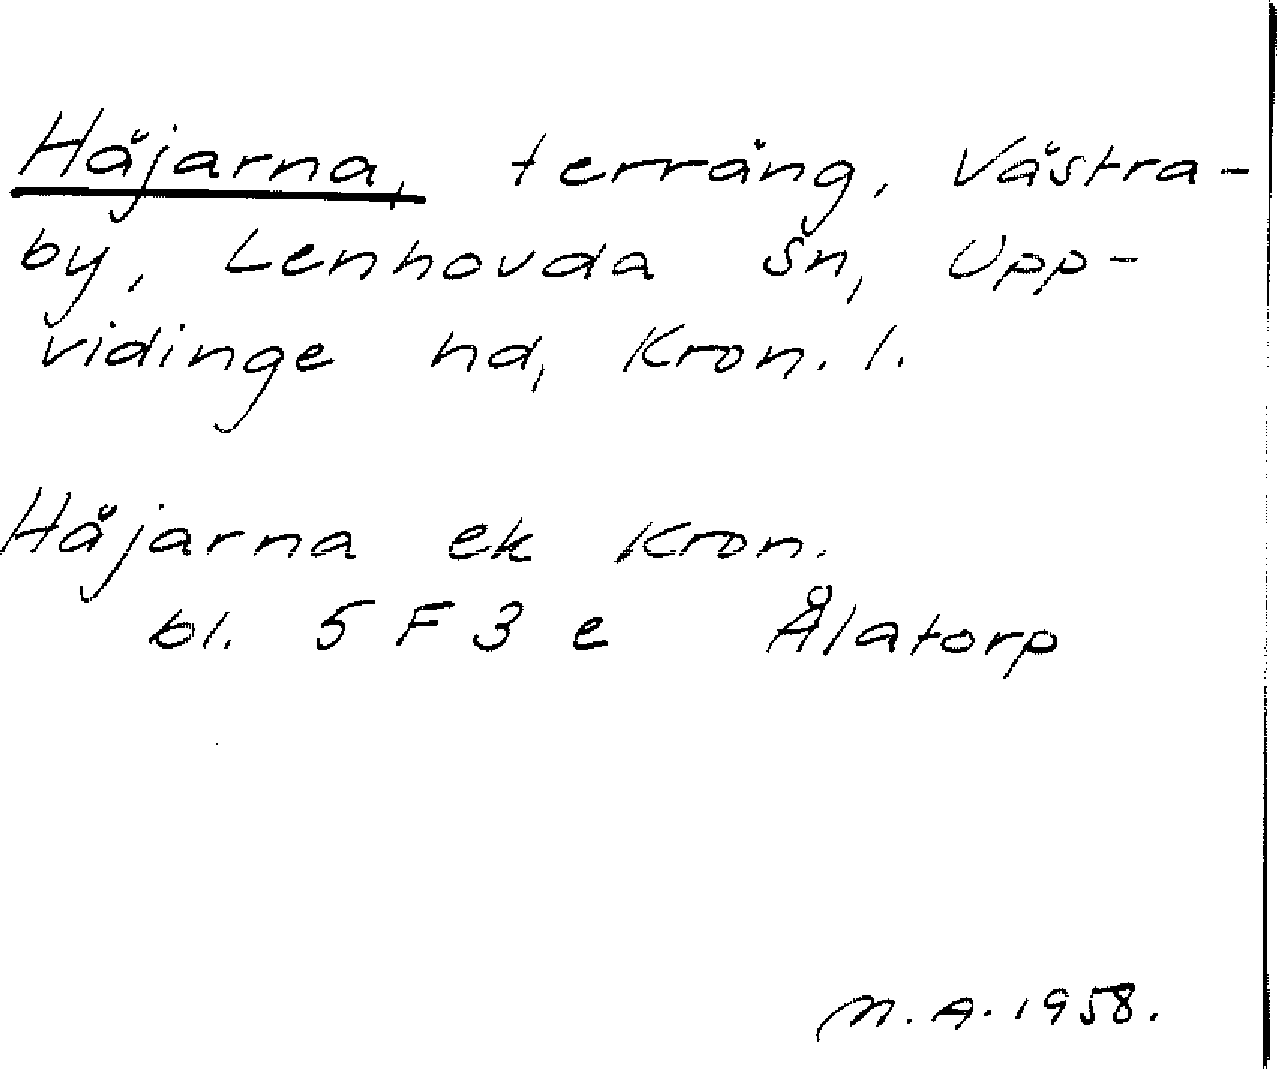 Håjarna, terräng, Västra-
by, Lenhovda sn, Upp-
vidinge hd, Kron. l.
Håjarna ek Kron.
bl. 5 F 3 e Ålatorp
M. A. 1958.